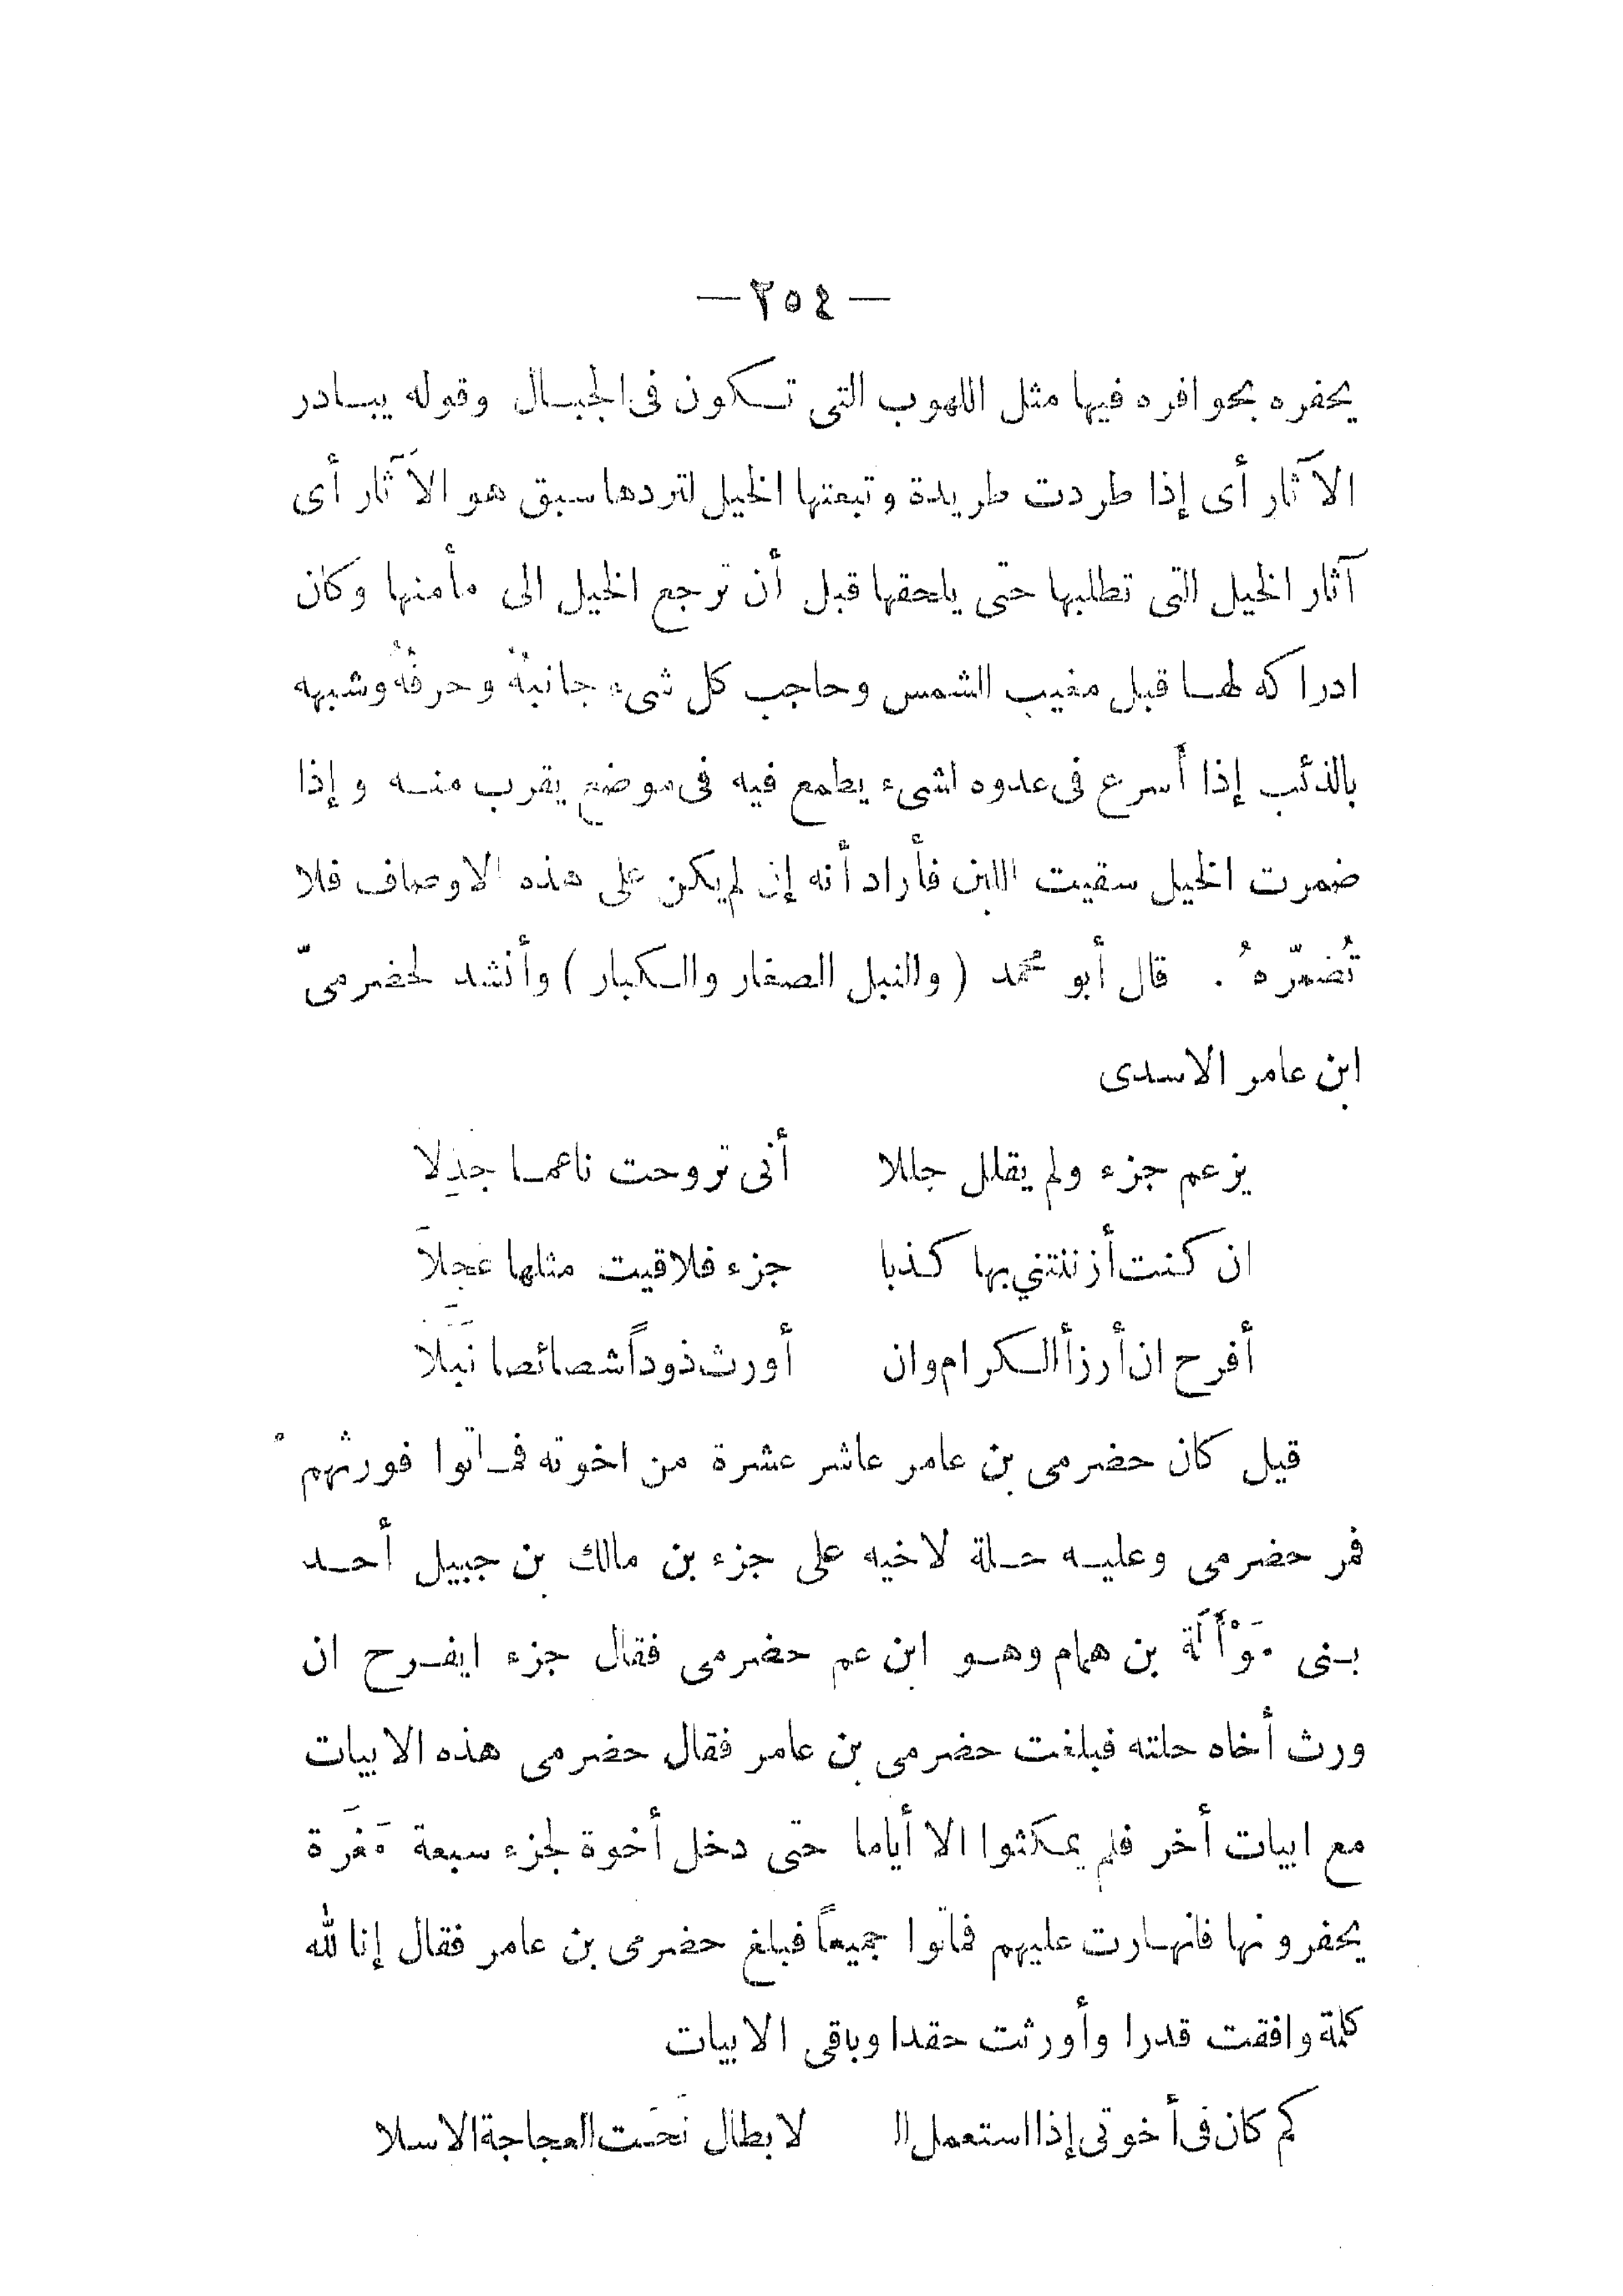 — ٢٥٤ —
يحفره بحوافره فيها مثل اللهوب التى تكون فى الجبال وقوله يبادر
الآثار أى إذا طردت طريدة وتبعتها الخيل لتردها سبق هو الآثار أى
آثار الخيل التى تطلبها حتى يلحقها قبل أن ترجع الخيل الى مأمنها وكان
ادراكه لها قبل مغيب الشمس وحاجب كل شىء جانبهُ وحرفهُ وشبهه
بالذئب إذا أسرع فى عدوه لشىء يطمع فيه فى موضع يقرب منه وإذا
ضمرت الخيل سقيت اللبن فأراد أنه إن لم يكن على هذه الاوصاف فلا
تُضمّرهُ . قال أبو محمد ( والنبل الصغار والكبار ) وأنشد لحضرمىّ
ابن عامر الاسدى
يزعم جزء ولم يقلل جللا أنى تروحت ناعما جذِلا
ان كنت أزننتني بها كذبا جزء فلاقيت مثلها عجلاَ
أفرح ان أرزأ الكرام وان أورث ذوداً شصائصا نَبَلا
قيل كان حضرمى بن عامر عاشر عشرة من اخوته فماتوا فورثهم
فمر حضرمى وعليه حلة لاخيه على جزء بن مالك بن جبيل أحد
بنى مَوْأَلَة بن همام وهو ابن عم حضرمى فقال جزء ايفرح ان
ورث أخاه حلته فبلغت حضرمى بن عامر فقال حضرمى هذه الابيات
مع ابيات أخر فلم يمكثوا الا أياما حتى دخل أخوة لجزء سبعة مَغَرة
يحفرونها فانهارت عليهم فماتوا جميعاً فبلغ حضرمى بن عامر فقال إنا لله
كلمة وافقت قدرا وأورثت حقدا وباقى الابيات
كم كان فى أخوتى إذا استعمل ال لابطال تحت العجاجة الاسلا